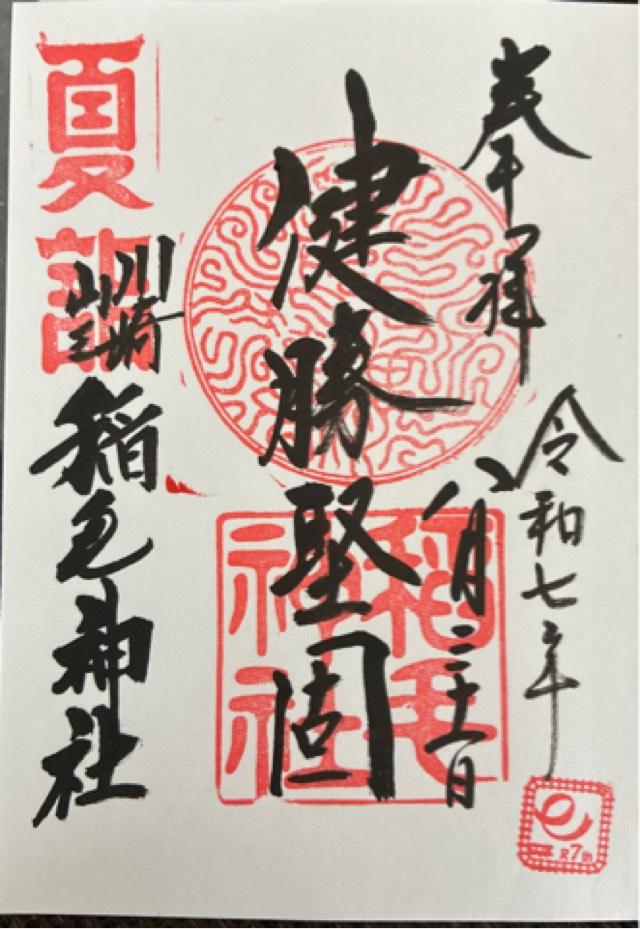 奉拝
令和七年
八月三十一日
健勝堅固
稲毛
神社
夏詣
川崎
山王
稲毛神社